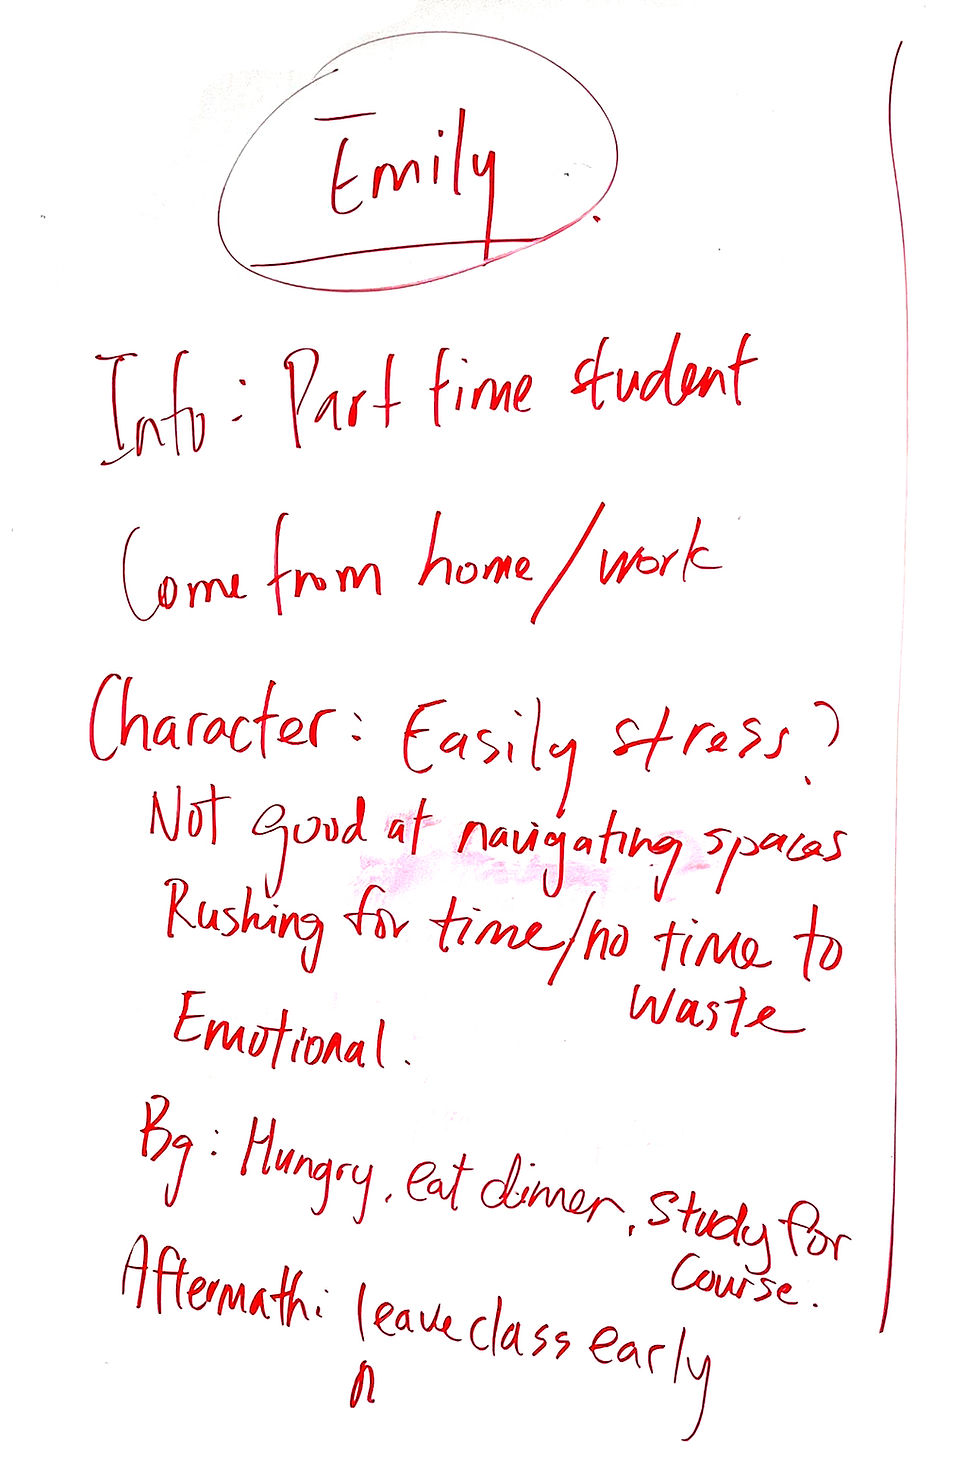 Emily
Info: Part time student
Come from home/work
Character: Easily stress?
Not good at navigating spaces
Rushing for time/no time to
waste
Emotional.
Bg: Hungry, eat dinner, study for
course.
Aftermath: leave class early